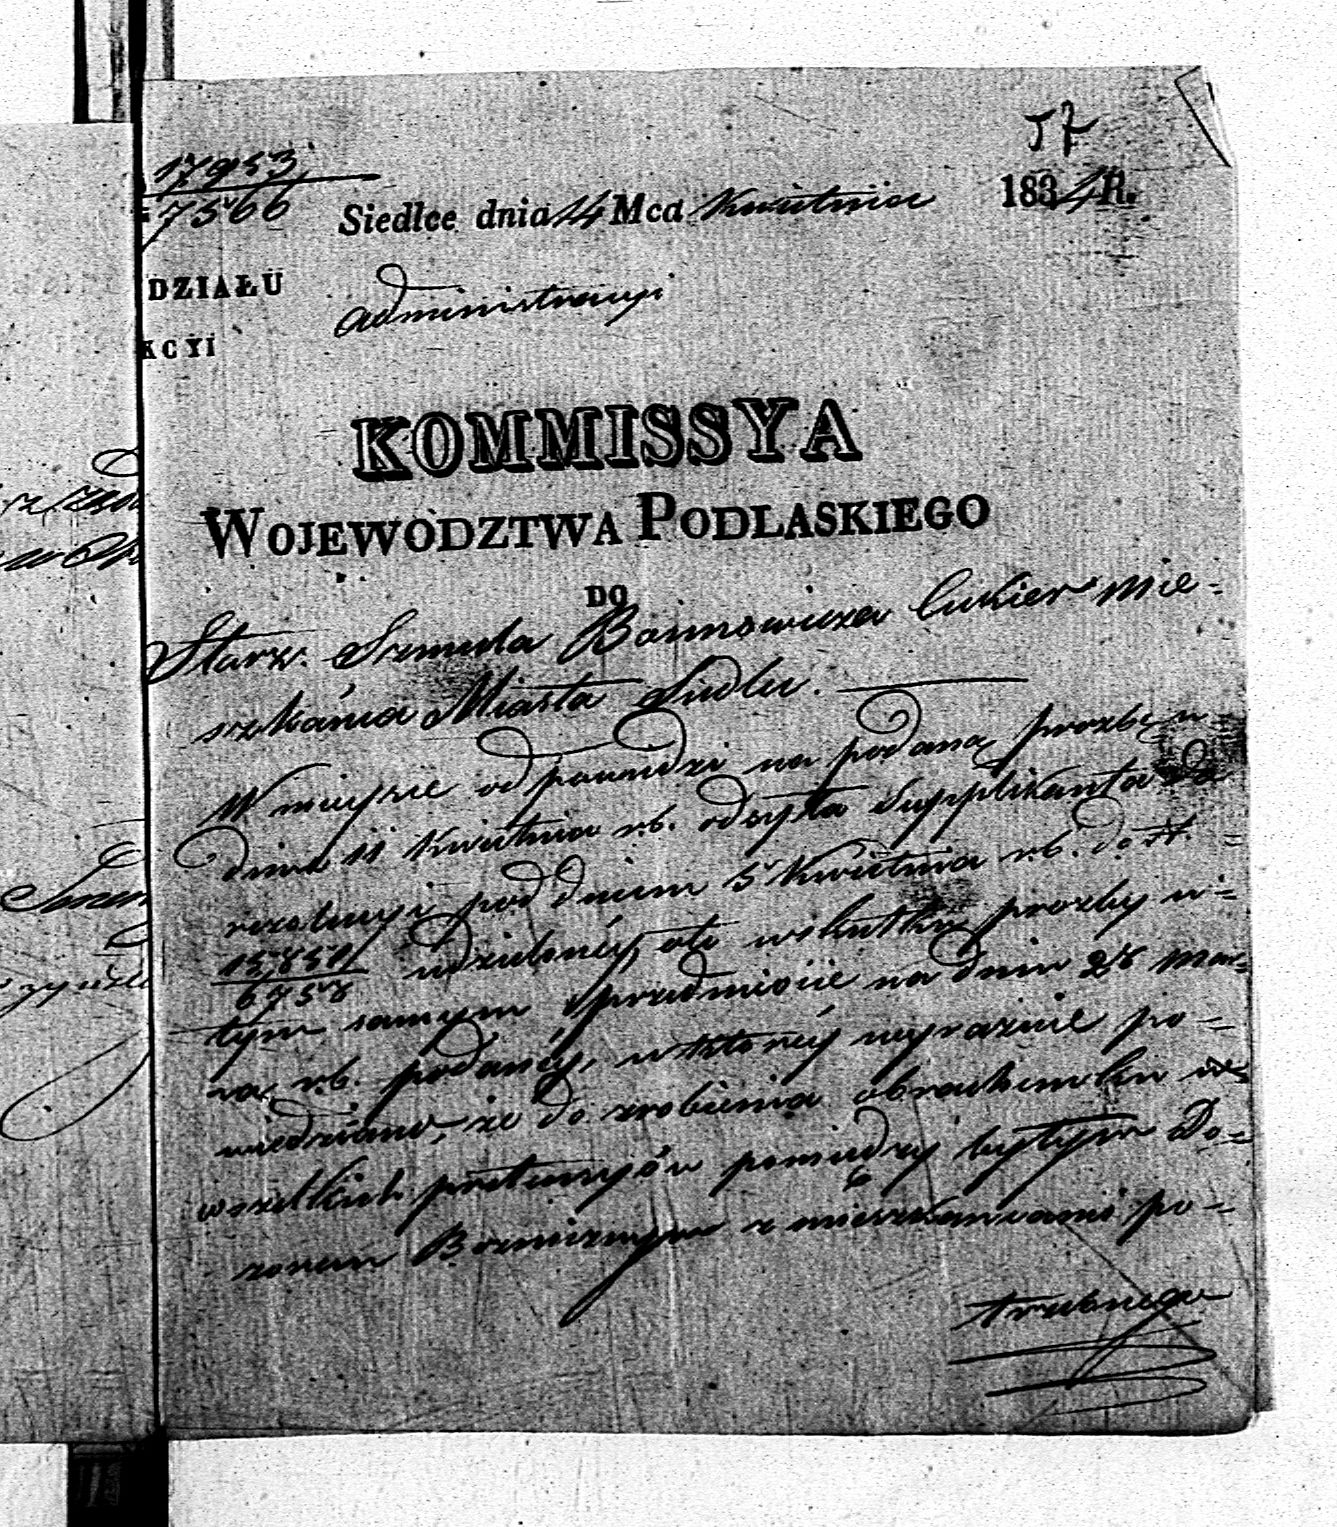 57
17953
7566
Siedlce dnia 14 Mca Kwietnia 1834 R.
DZIAŁU Administracyi
KCYI
KOMMISSYA
WOJEWÓDZTWA PODLASKIEGO
DO
Starz. Szmula Bornsowicza Cukier mie-
szkańca Miasta Siedlec.
W miejsce odpowiedzi na podaną prozbę w
dniu 11 Kwietnia r.b. odsyła Supplikanta do
rezolucyi pod dniem 5 Kwietnia r.b. do N.
15851
6958 udzielonéy, ato wskutku prozby w-
tym samym przedmiocie na dniu 28 Mar-
ca r.b. podanéy, w któréy wyraźnie po-
wiedziano, że do zrobienia obrachunku ze
wszelkich pretensyów pomiędzy byłym Do-
zorem Bożniczym z mieszkańcami po-
trzebnego